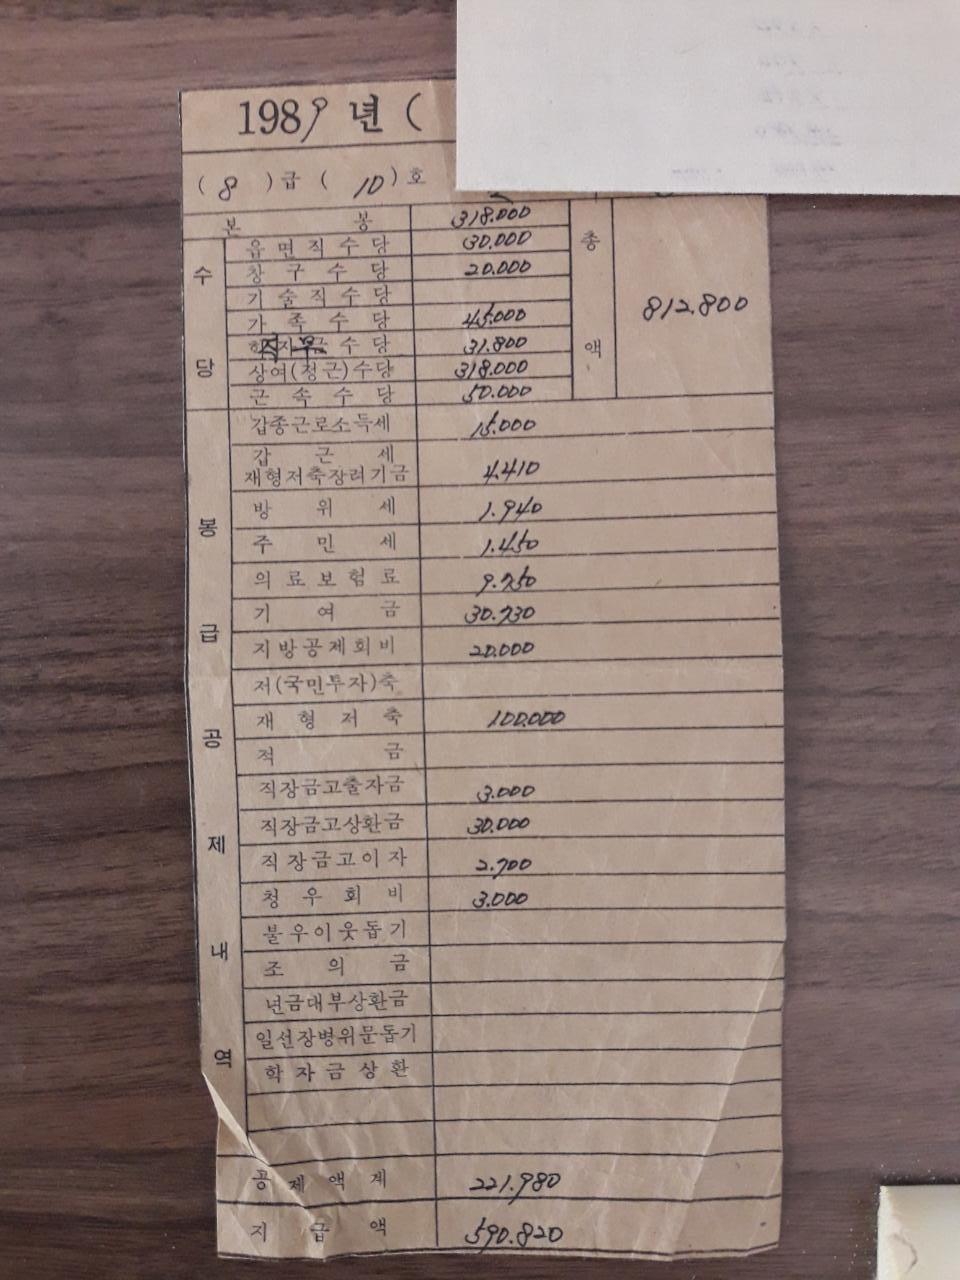 1989년 (
( 8 ) 급 ( 10 ) 호
본 봉 318.000
수당
읍면직수당 30.000
창구수당 20.000
기술직수당
가족수당 45.000
직무수당 31.800
상여(정근)수당 318.000
근속수당 50.000
총액 812.800
봉급공제내역
갑종근로소득세 15.000
갑근세
재형저축장려기금 4.410
방위세 1.940
주민세 1.450
의료보험료 9.750
기여금 30.730
지방공제회비 20.000
저(국민투자)축
재형저축 100.000
적금
직장금고출자금 3.000
직장금고상환금 30.000
직장금고이자 2.700
청우회비 3.000
불우이웃돕기
조의금
년금대부상환금
일선장병위문돕기
학자금상환
공제액계 221.980
지급액 590.820